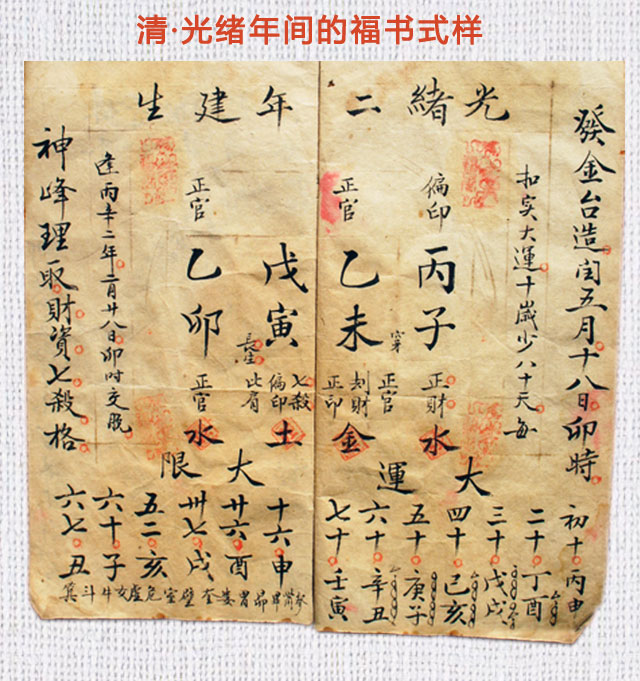 清·光绪年间的福书式样
光緒二年建生
發金台造闰五月十八日卯時
扣实大運十歲少八十天每
逢丙辛二年二月廿八日卯时交脱
神峰理取財資七殺格
偏印
丙子
正財
水
正官
乙未
穿
正官
刦財
正印
金
戊寅
長生
七殺
偏印
比肩
土
正官
乙卯
正官
水
大運
初十丙申
二十丁酉
三十戊戌
四十己亥
五十庚子
六十辛丑
七十壬寅
大限
十六申
廿六酉
卅七戌
五二亥
六十子
六七丑
昴胃娄奎壁室危虚女牛斗箕